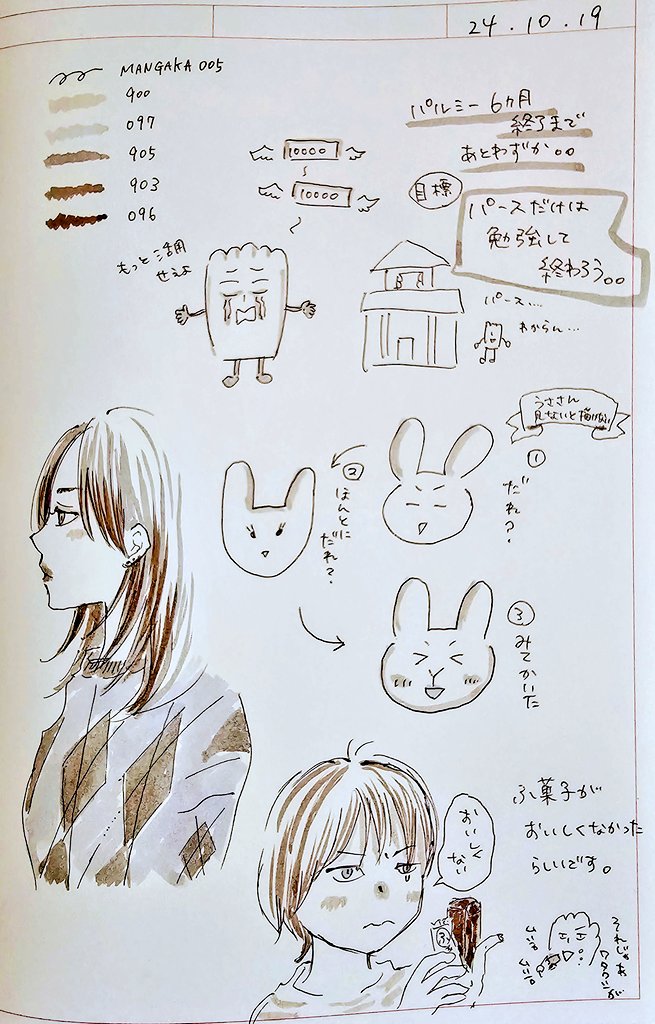 24.10.19
MANGAKA 005
900
097
905
903
096
パルミー 6ヶ月
終了まで
あとわずか。。
目標
パースだけは
勉強して
終わろう。。
10000
10000
もっと活用
せぇよ
パース…
わからん…
うささん
見ないと描けない
①
だれ?
②
ほんとに
だれ?
③
みてかいた
ふ菓子が
おいしくなかった
らしいです。
おいしく
ない
ふ
それじゃあ
ワタクシが